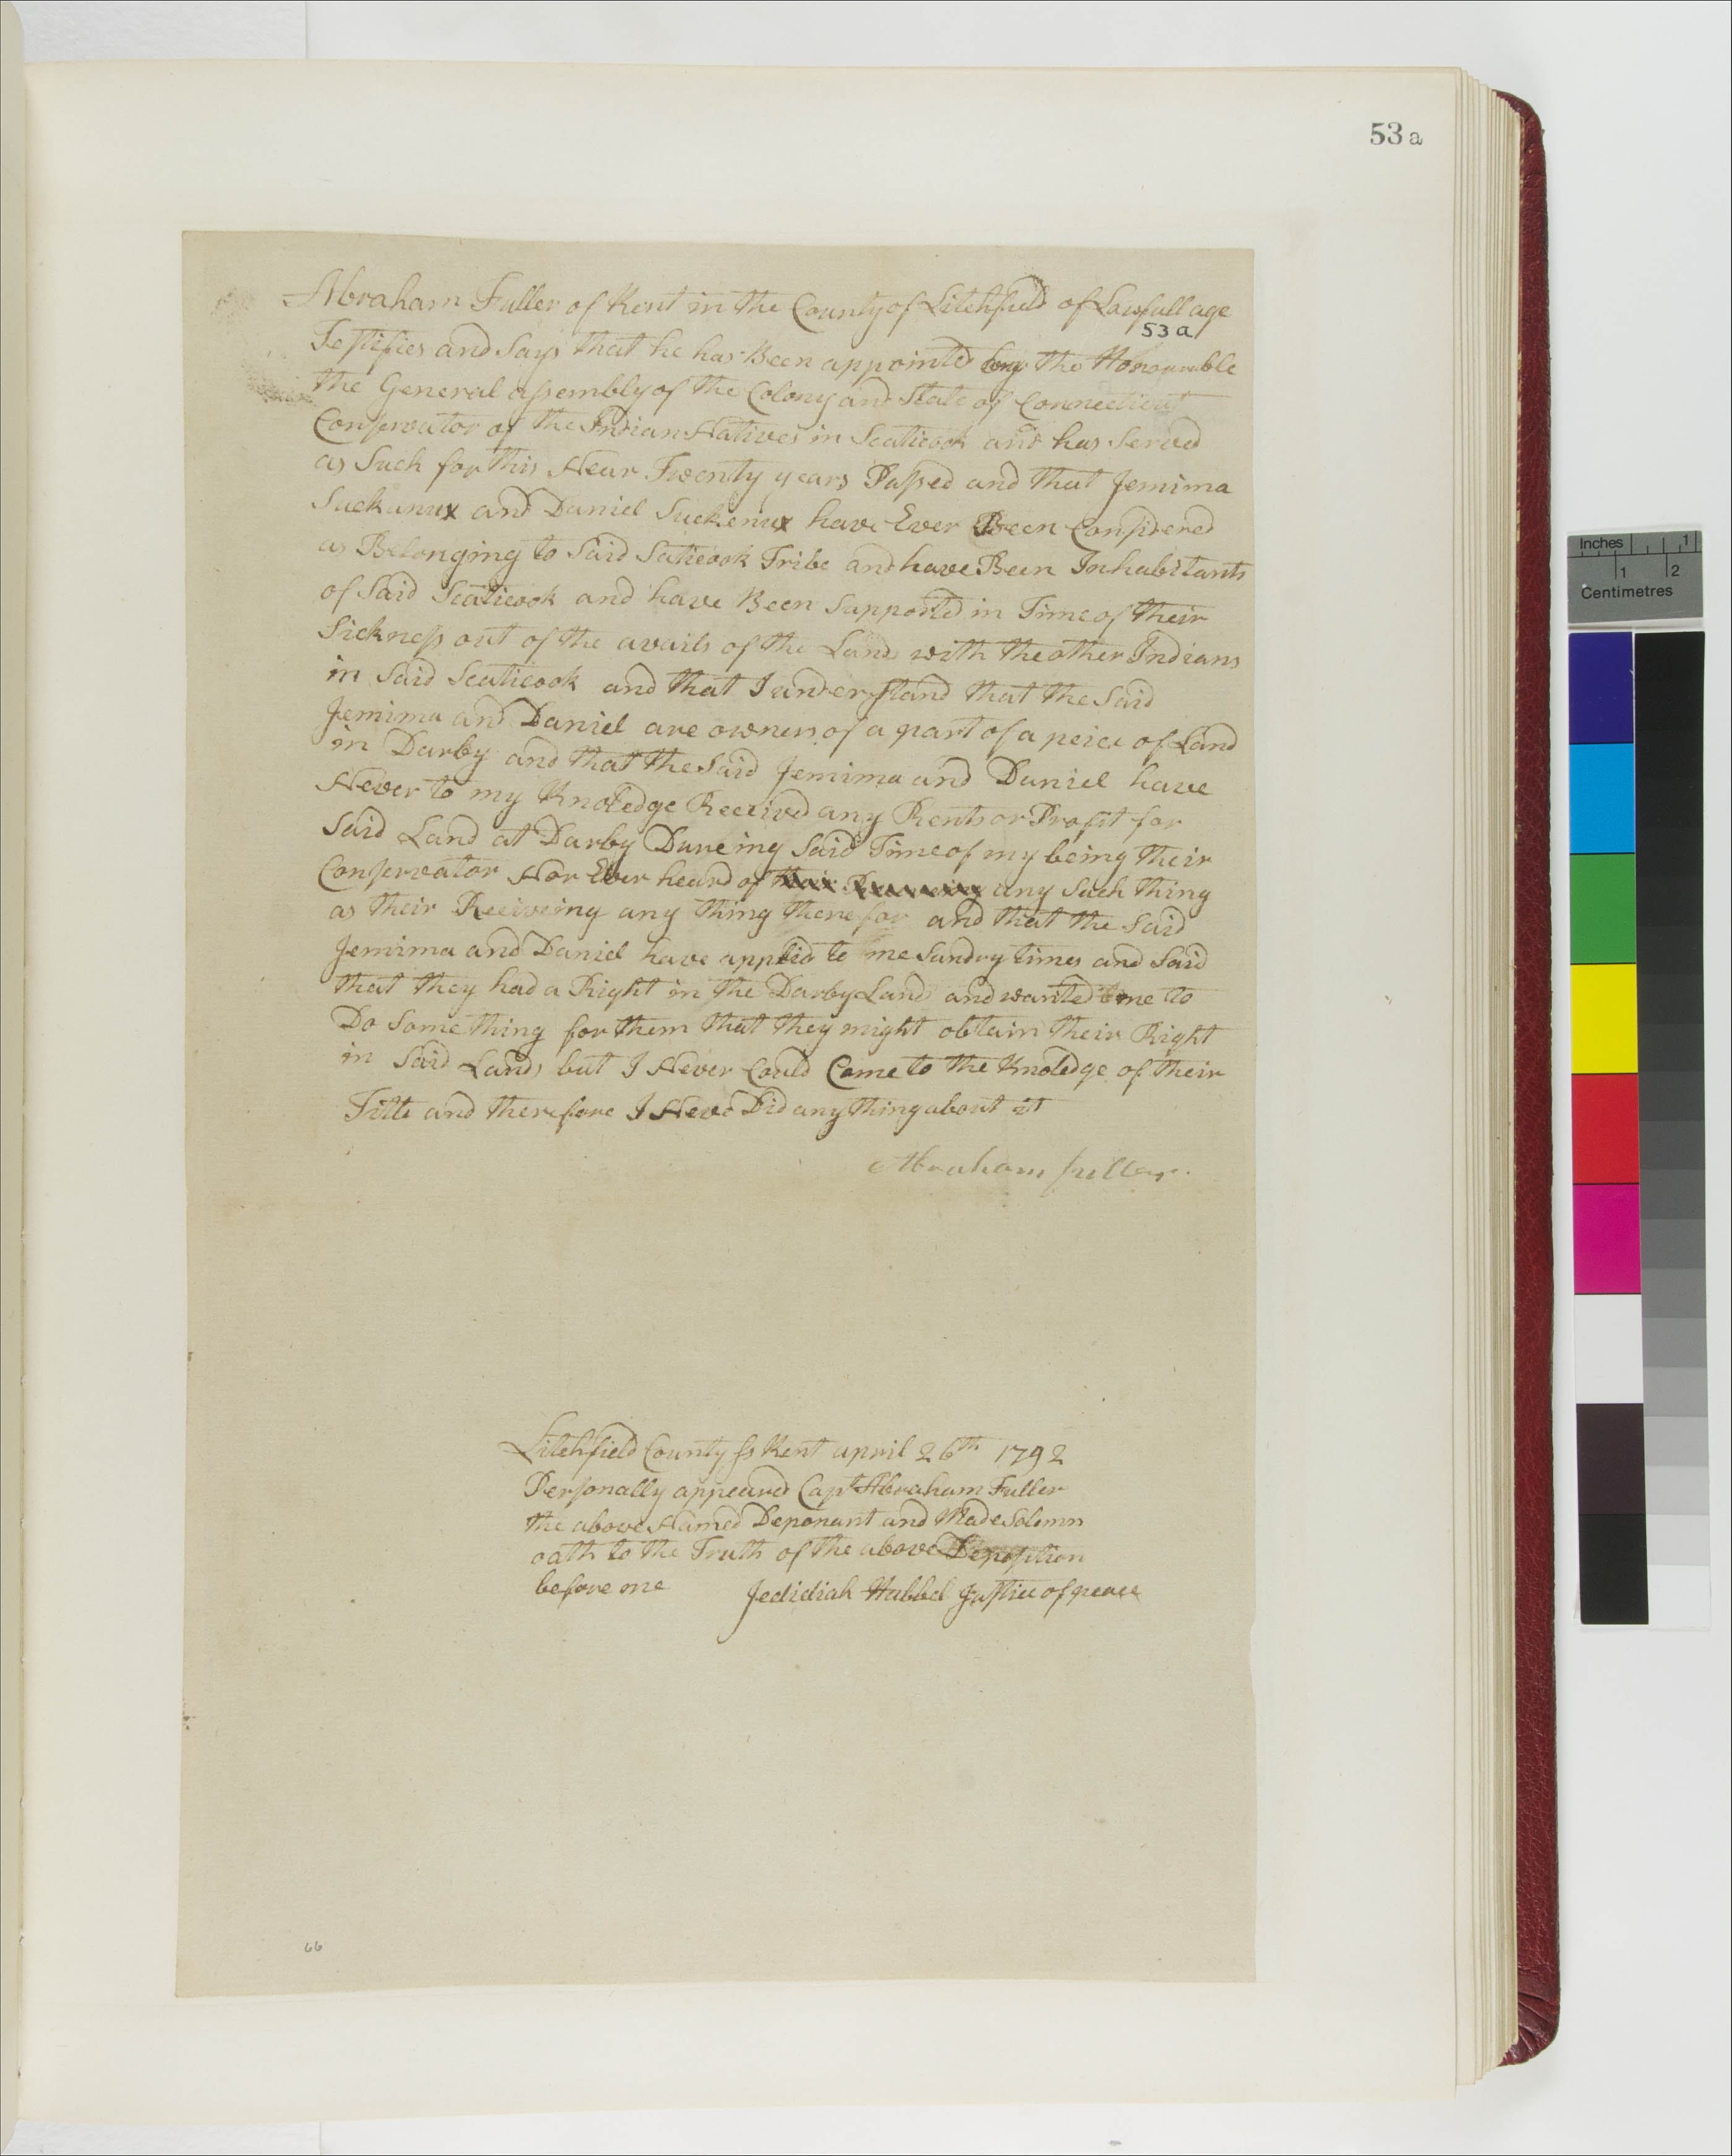 53 a
Abraham Fuller of Kent in the County of Litchfield of Lawfull age
53 a
Testifies and Says that he has Been appointed by the Honourable
the General assembly of the Colony and State of Connecticut
Conservator of the Indian Natives in Scaticook and has Served
as Such for this Near Twenty years Passed and that Jemima
Suckanux and Daniel Suckenux have Ever Been Considered
as Belonging to Said Saticook Tribe and have Been Inhabitants
of Said Scaticook and have Been Supported in Time of their
Sickness out of the avails of the Lands with the other Indians
in Said Scaticook and that I understand that the Said
Jemima and Daniel are owners of a part of a peice of Land
in Darby and that the Said Jemima and Daniel have
Never to my Knoledge Received any Rents or Profit for
Said Land at Darby Dureing Said Time of my being their
Conservator Nor Ever heard of their any Such thing
as their Receiveing any thing therefor and that the Said
Jemima and Daniel have applied to me Sundry times and Said
that they had a Right in the Darby Land and wanted me to
Do Something for them that they might obtain their Right
in Said Lands but I Never Could Come to the Knoledge of their
Title and therefore I Neve Did any thing about it
Abraham fuller
Litchfield County ss Kent april 26th 1792
Personally appeared Capt Abraham Fuller
the above Named Deponant and Made Solemn
oath to the Truth of the above Deposition
before me Jedidiah Hubbel Justice of peace
66
Inches 1
1 2
Centimetres